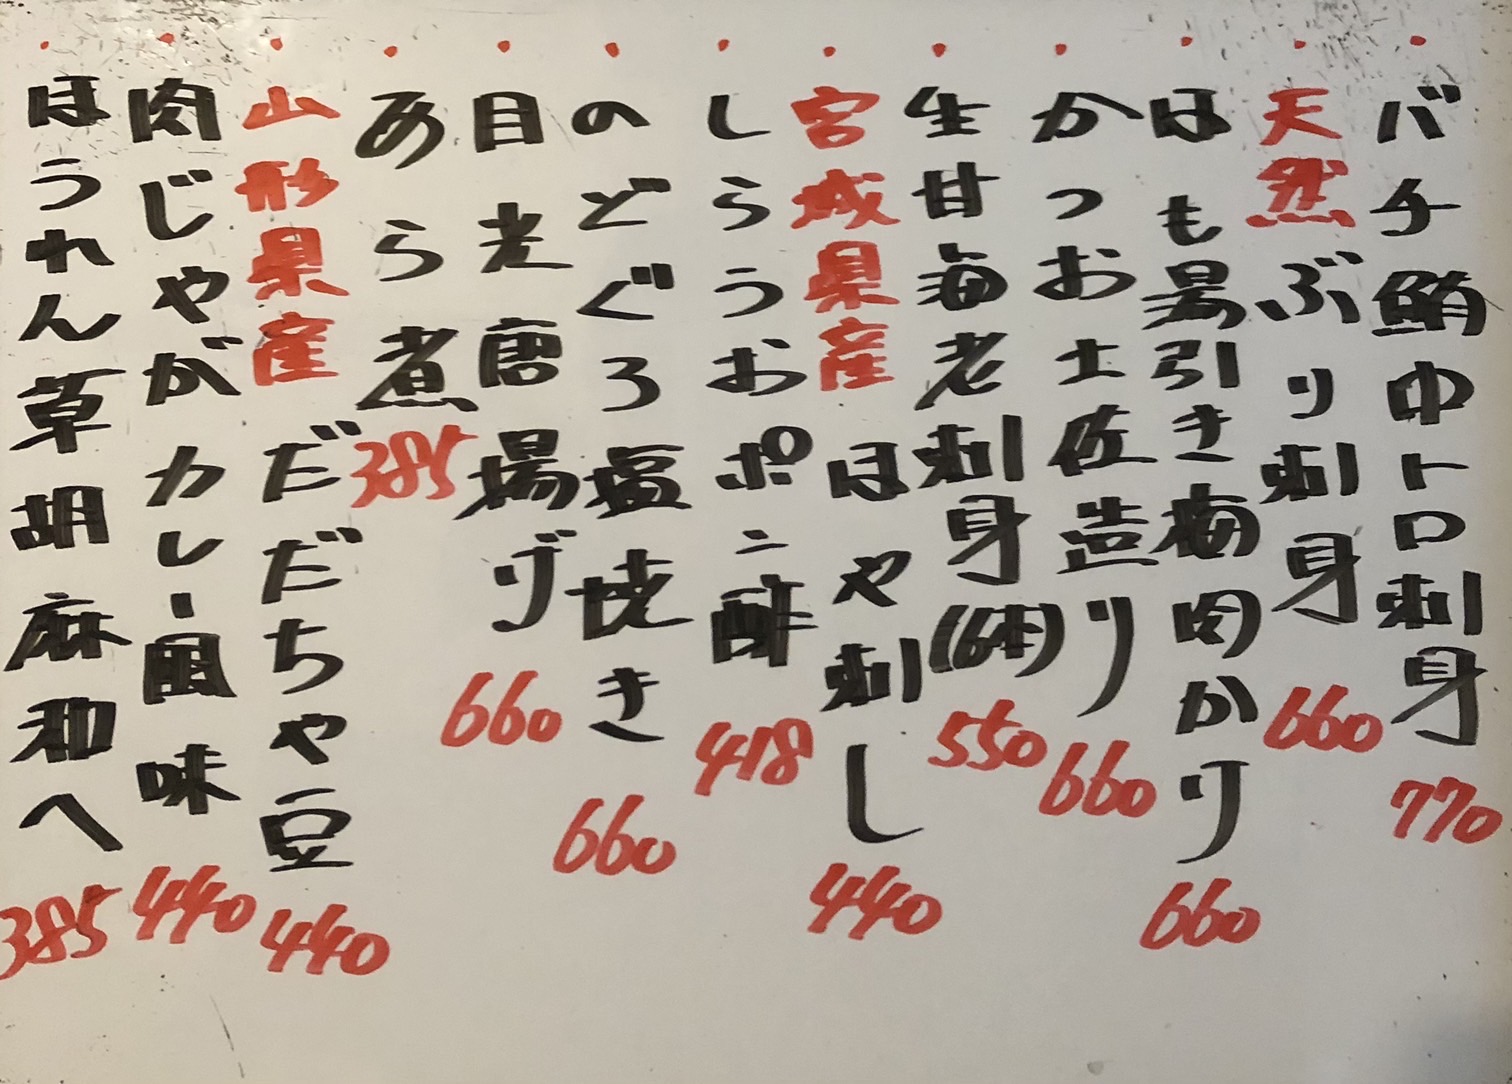 ・バチ鮪中トロ刺身 770
・天然ぶり刺身 660
・はも湯引き梅肉かり 660
・かつお土佐造り 660
・生甘海老刺身(6本) 550
・宮城県産ほや刺し 440
・しらうおポン酢 418
・のどぐろ塩焼き 660
・目光唐揚げ 660
・あら煮 385
・山形県産だだちゃ豆 440
・肉じゃがカレー風味 440
・ほうれん草胡麻和へ 385